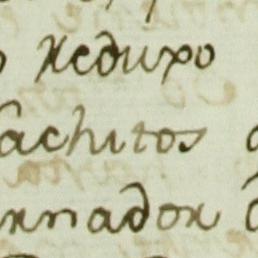 Reduxo
achitos
rnador